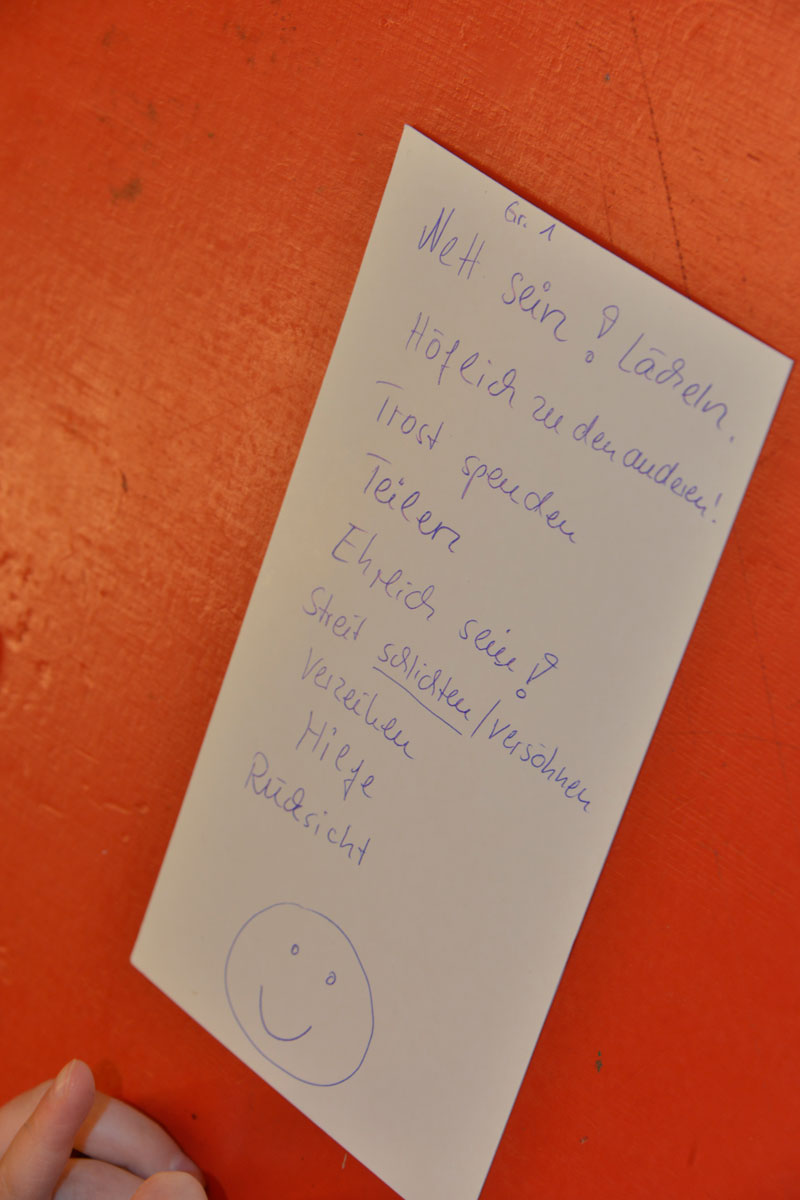 Gr. 1
Nett sein! Lächeln.
Höflich zu den anderen!
Trost spenden
Teilen
Ehrlich sein!
Streit schlichten/versöhnen
Verzeihen
Hilfe
Rücksicht